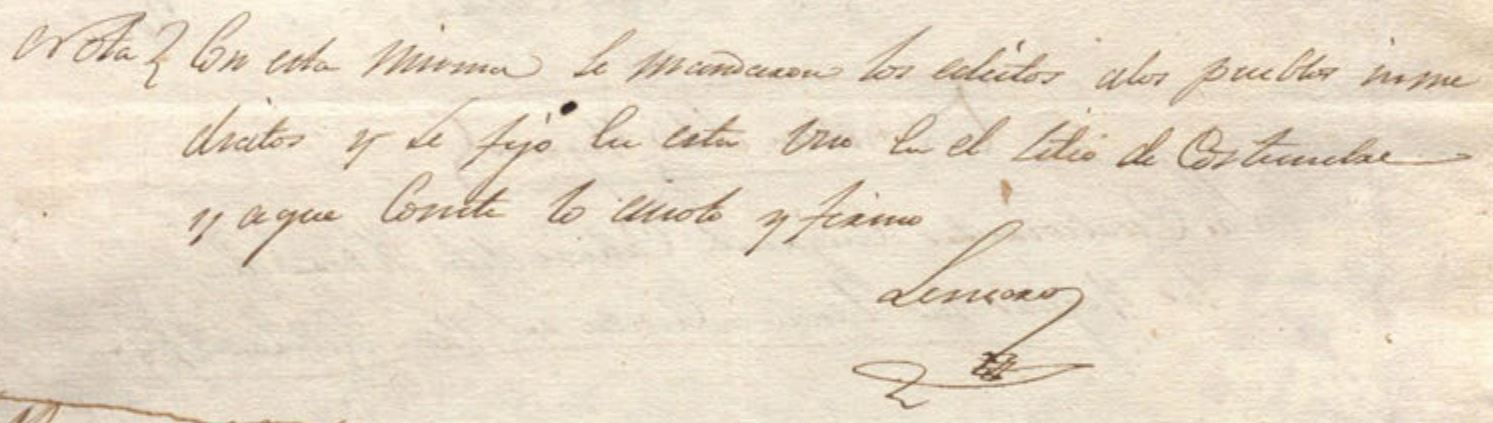 Nota Con esta misma se mandaron los edictos alos pueblos inme
diatos y se fijó en esta uno en el sitio de Costumbre
y aque Conste lo anoto y firmo